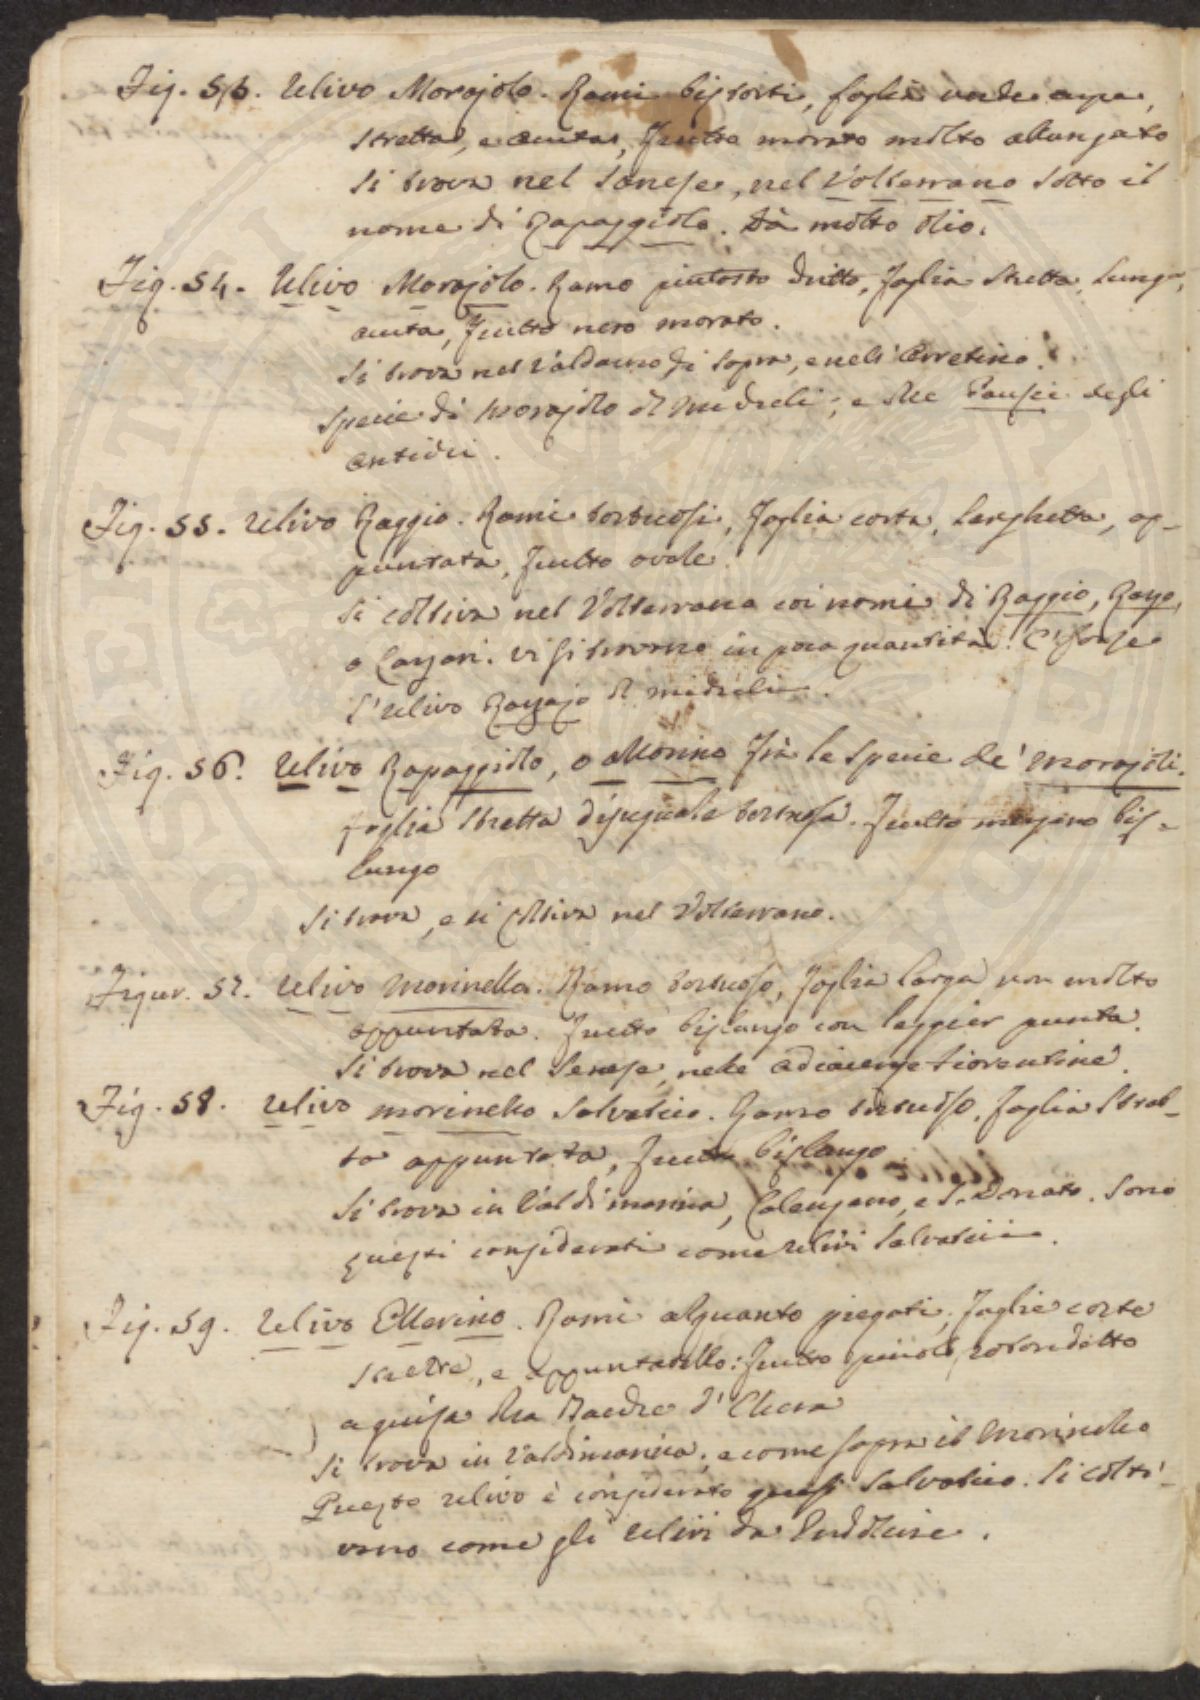 Fig. 53. Ulivo Morajolo. Rami bistorti, foglia verde cupa,
stretta, e acuta, frutto morato molto allungato
Si trova nel Sanese, nel Volterrano sotto il
nome di Rapaggiolo. Dà molto olio.
Fig. 54. Ulivo Morajolo. Ramo piutosto dritto, foglia stretta, lunga,
acuta, frutto nero morato.
Si trova nel Valdarno di sopra, e nell' Arretino.
Specie di morajolo di Micheli; e dee Pausie degli
Antichi.
Fig. 55. Ulivo Raggio. Rami tortuosi, foglia corta, larghetta, ap-
puntata, frutto ovale.
Si coltiva nel Volterrana coi nomi di Raggio, Rayo,
o . vi si trovano in poca quantità. E' forse
l'ulivo di micheli.
Fig. 56. Ulivo Rapaggiolo, o Morino Frà le specie de' morajoli.
foglia stretta disuguale tortuosa. Frutto mezano bis-
lungo
Si trova, e si coltiva nel Volterrano.
Figur. 57. Ulivo Morinella. Ramo tortuoso, foglia larga non molto
appuntata. Frutto bislungo con leggier punta.
Si trova nel Senese, nelle adiacenze fiorentine.
Fig. 58. Ulivo morinello salvatico. Ramo tortuoso, foglia stret-
ta appuntata, frutto bislungo
Si trova in Valdimarina, Calenzano, e S. Donato. Sono
questi considerati come ulivi salvatici.
Fig. 59. Ulivo Ellerino. Rami alquanto piegati, foglie corte
strette, e appuntatello: frutto piciolo, rotondetto
a guisa della Bacche d'Ellera
Si trova in Valdimarina, e come sopra il Morinello
Questo ulivo è considerato quasi salvatico. Si colti-
vano come gli ulivi da Indolcire.